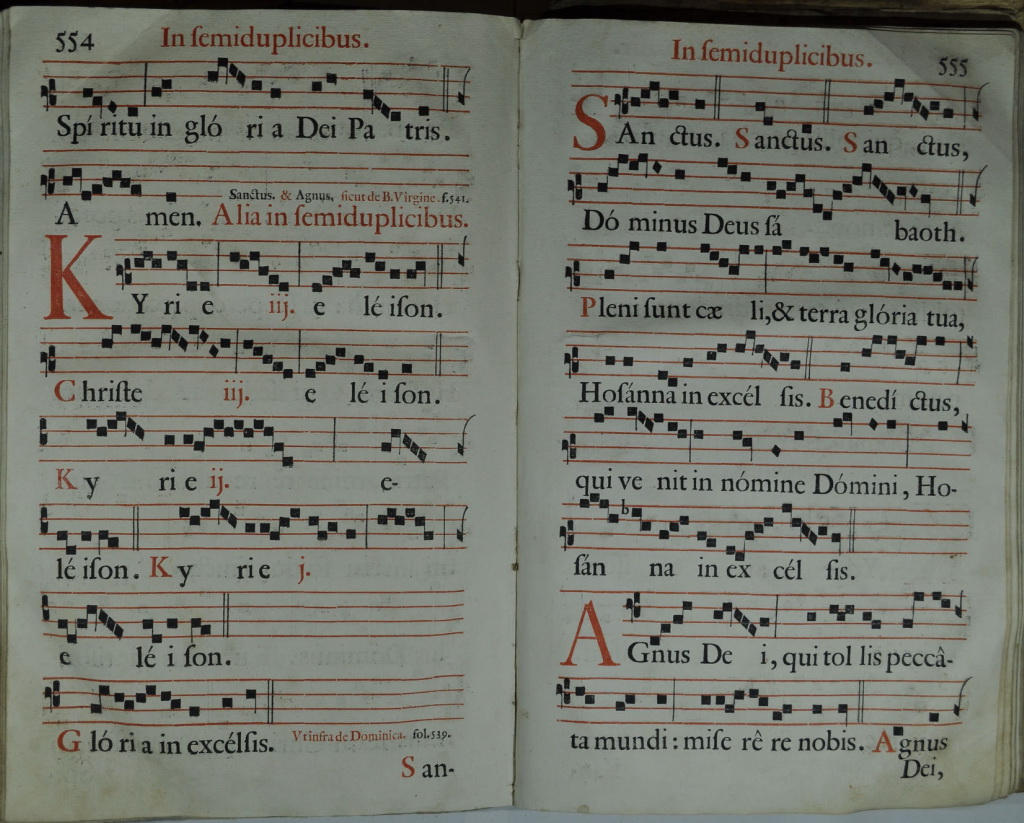 554 In ſemiduplicibus.
Spí ritu in gló ri a Dei Pa tris.
Sanctus. & Agnus, ſicut de B. Virgine. f.541.
A men. Alia in ſemiduplicibus.
KY ri e iij. e lé iſon.
Chriſte iij. e lé i ſon.
Ky ri e ij. e-
lé iſon. Ky ri e j.
e lé i ſon.
Gló ri a in excélſis. Vt infra de Dominica. fol.539.
San-
In ſemiduplicibus. 555
SAn ctus. Sanctus. San ctus,
Dó minus Deus ſá baoth.
Pleni ſunt cæ li, & terra glória tua,
Hoſánna in excél ſis. Benedí ctus,
qui ve nit in nómine Dómini, Ho-
b
ſán na in ex cél ſis.
AGnus De i, qui tol lis peccâ-
ta mundi: miſe rê re nobis. Agnus
Dei,